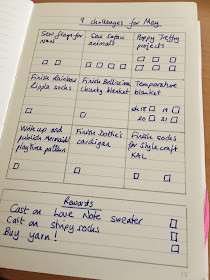 9 challenges for May
Sew flags for
Now!
Sew Safari
animals
Poppy Treffry
projects
Finish Rainbow
Ripple socks
Finish Bellissima
chunky blanket
Temperature
blanket
wk 18 19
20 21
Write up and
publish Mermaid
playtime pattern
Finish Dottie's
cardigan
Finish socks
for stylecraft
KAL
Rewards
Cast on Love Note sweater
Cast on stripy socks
Buy yarn!